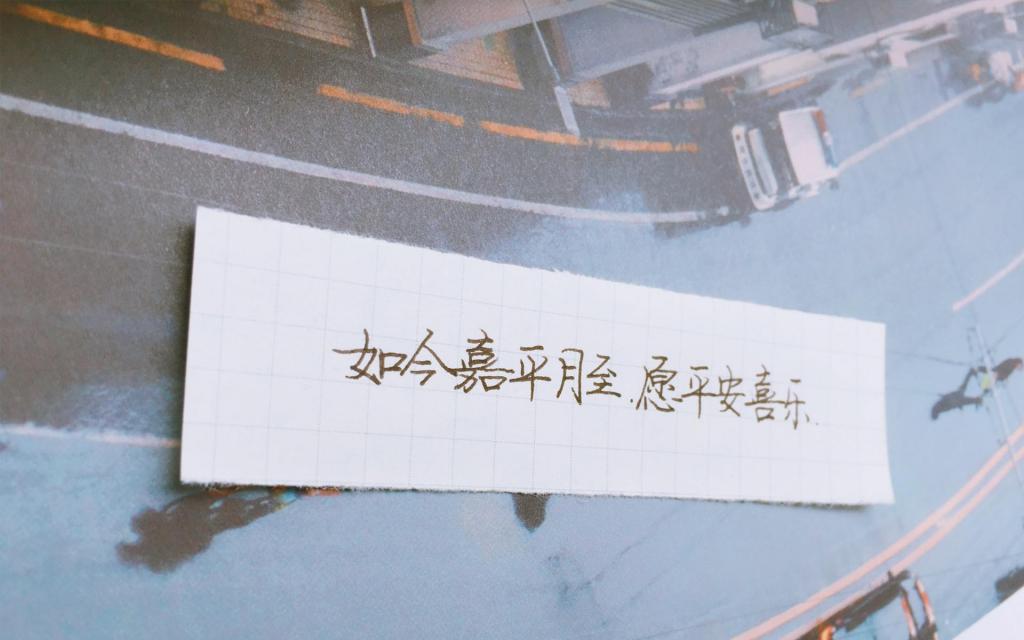 如今嘉平月至.愿平安喜乐.